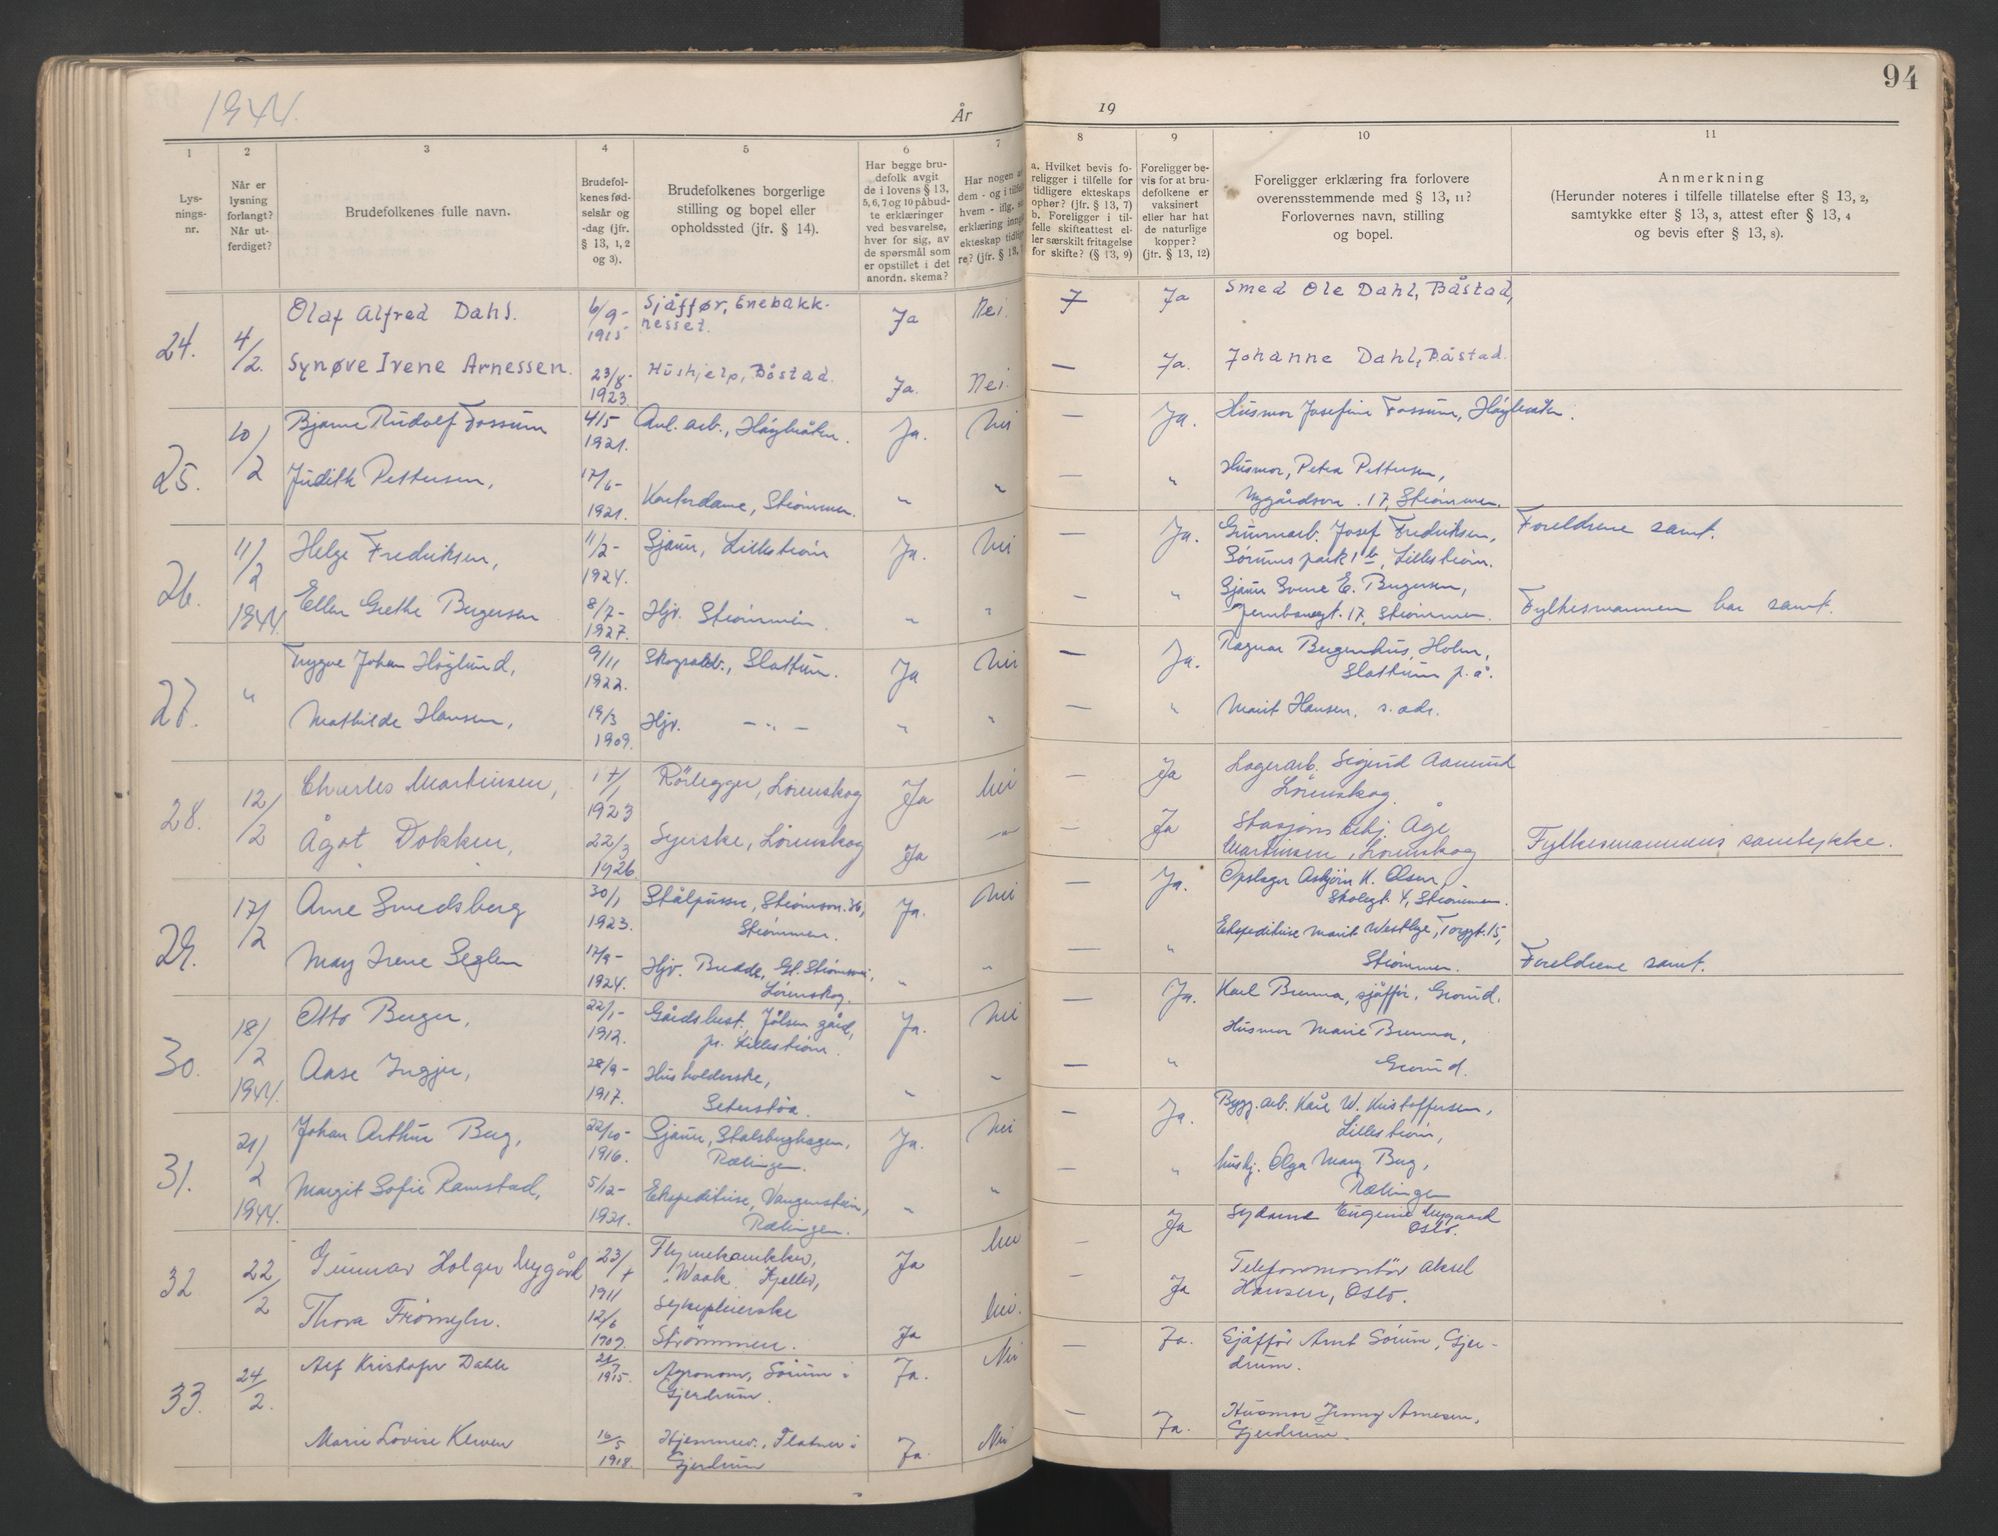 94
1944.
År
19
1
2
3
4
5
6
7
8
9
10
11
Lys-
nings-
nr.
Når er
lysning
forlangt?
Når ut-
ferdiget?
Brudefolkenes fulle navn.
Brudefol-
kenes fød-
selsår og
-dag (jfr.
§ 13, 1, 2
og 3).
Brudefolkenes borgerlige
stilling og bopel eller
opholdssted (jfr. § 14).
Har begge bru-
defolk avgit
de i lovens § 13,
5, 6, 7 og 10 påbud-
te erklæringer
ved besvarelse,
hver for sig, av
de spørsmål som
er opstillet i det
anordn. skema?
Har nogen a
dem - og i tilfelle
hvem - iflg. s
erklæring inng
ekteskap tidlig
re? (jfr. § 13,
a. Hvilket bevis fo-
religger i tilfelle for
tidligere ekteskaps
ophør? (jfr. § 13, 7)
b. Foreligger i til-
felle skifteattest el-
ler særskilt fritagelse
for skifte? (§ 13, 9)
Foreligger be-
vis for at bru-
defolkene er
vaksinert
eller har hat
de naturlige
kopper?
(jfr. § 13, 12)
Foreligger erklæring fra forlovere
overensstemmende med § 13, 11?
Forlovernes navn, stilling
og bopel.
Anmerkning
(Herunder noteres i tilfelle tillatelse efter § 13, 2,
samtykke efter § 13, 3, attest efter § 13, 4
og bevis efter § 13, 8).
24. 4/2. Olaf Alfred Dahl. 6/9- 1915 Sjåffør, Enebakk-
nesset. Ja Nei. Ja Smed Ole Dahl, Båstad,
Synøve Irene Arnessen. 23/8- 1923. Hushjelp, Båstad. Ja. Nei — Ja. Johanne Dahl, Båstad.
25. 10/2 Bjarne Rudolf Fossum 4/5 1921. Anl. arb., Høgbråten. Ja. Nei — Ja. Husmor Josefine Fossum, Høgbråten.
Judith Pettersen, 17/6- 1921. Kontordame, Strømmen. " " — " Husmor, Petra Pettersen,
Nygårdsvn. 17, Strømmen.
26. 11/2 1944. Helge Fredriksen, 11/2- 1924. Sjauer, Lillestrøm Ja. Nei — Ja. Josef Fredriksen, Foreldrene samt.
Sørums park 1 b, Lillestrøm.
Ellen Grethe Birgersen 8/7- 1927. Hjv. Strømmen. " " " Sjauer Sverre E. Birgersen,
Jernbanegt. 17, Strømmen. Fylkesmannen har samt.
27. " Trygve Johan Høglund, 9/11 1922. Skogsarb., Slattum. Ja Nei — Ja. Ragnar Bergenhus, Holm,
Slattum p.å.
Mathilde Hansen, 19/3 1909. Hjv. — " — " " — " Marit Hansen, s. adr.
28. 12/2 Charles Martinsen, 1923 Rörlegger, Lörenskog Ja Nei — Ja Lagerarb. Sigurd Aamund
Lörenskog.
Ågot Dokken, 22/3 1926. Syerske, Lörenskog Ja — " — — Ja Stasjons betj. Åge
Martinsen, Lörenskog Fylkesmannens samtykke.
29. 17/2 Arne Smedsberg 30/1 1923. Stålpusser, Strømsvn. 36,
Strømmen. Ja. Nei — Ja. Opslager Asbjörn K. Olsen,
Skolegt. 4, Strømmen.
May Irene Seglen 17/9- 1924. Hjv. Budde, Gl. Strømsvei,
Lørenskog. " " — " Ekspeditrise Marit Westbye, Torggt. 15,
Strømmen. Foreldrene samt.
30. 18/2 1944. Otto Berger, 22/1- 1912. Gårdsbest. Jölsen gård,
pr. Lillestrøm. Ja. Nei — Ja. Karl Brenna, sjåffør, Grorud.
Aase Ingjer, 28/9- 1917. Husholderske,
Seterstøa. " " — " Husmor Marie Brenna,
Grorud.
31. 21/2 1944. Johan Arthur Berg, 22/10- 1916. Sjauer, Stalsberghagen,
Rælingen. Ja. Nei — Ja. Bygg. arb. Kåre W. Kristoffersen,
Lillestrøm,
Margit Sofie Ramstad, 5/12- 1921. Ekspeditrise, Vangenstein,
Rælingen. " " — " Hushj. Olga Mary Berg,
Rælingen
32 22/2 Gunnar Holger Nygård 23/ 1911 Flymekaniker,
Kjeller, Ja Nei Ja Sydame Eugenie Nygaard
Oslo.
Thora Frömyhr. 12/6 1909. Sykepleierske
Strömmen. Ja Nei. — Ja Telefonmontör Aksel
Hansen, Oslo.
33. 24/2. Alf Kristofer Dahle 21/7 1915. Agronom, Sörum i
Gjerdrum. Ja. Nei — Ja. Sjåffør Arnt Sörum, Gjer-
drum.
Marie Lovise Kerven 16/5 1918. Hjemmev., Flatner i
Gjerdrum Ja. Nei — Ja. Husmor Jenny Arnesen,
Gjerdrum.